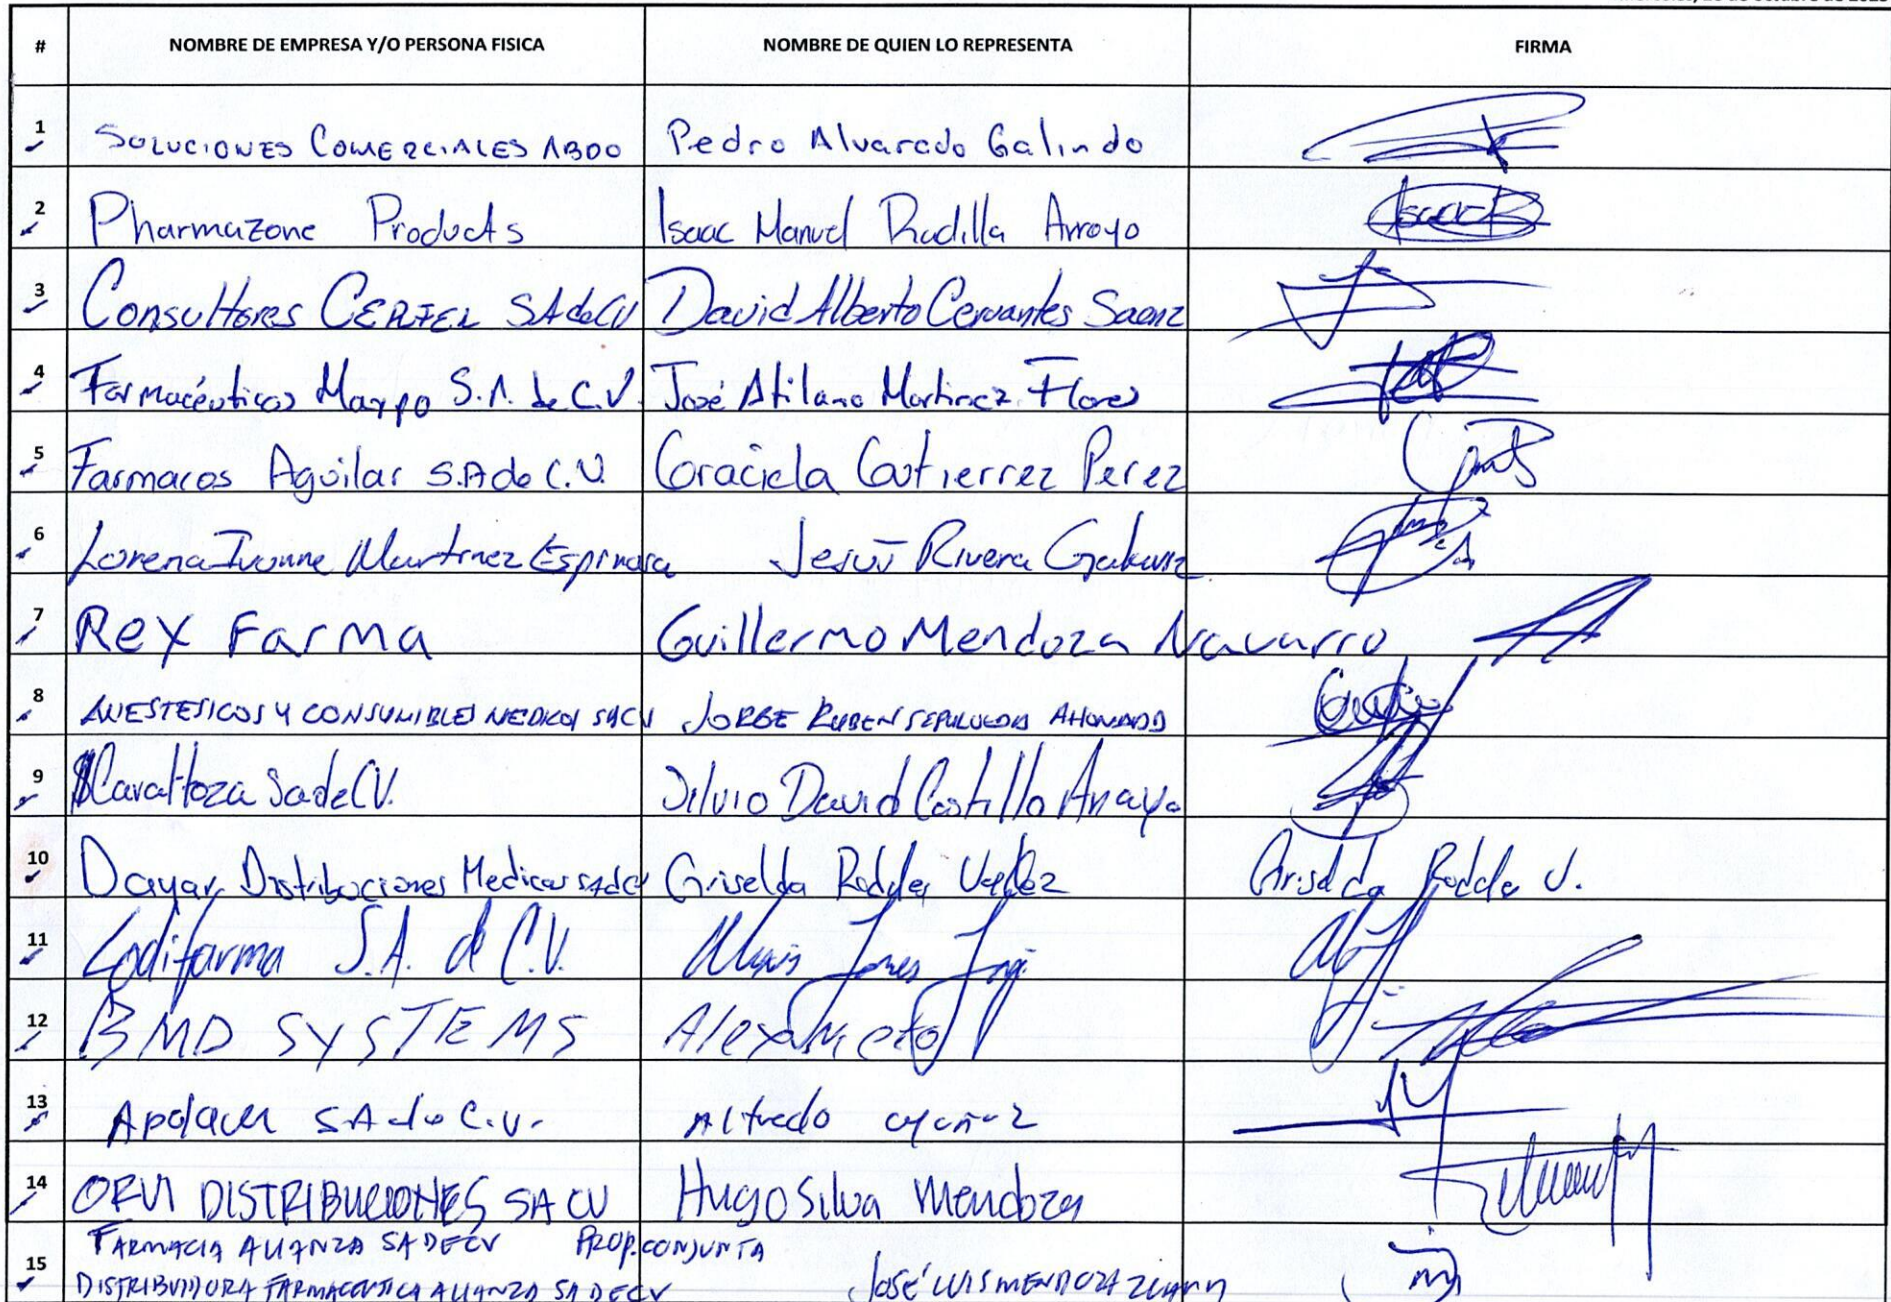 # NOMBRE DE EMPRESA Y/O PERSONA FISICA NOMBRE DE QUIEN LO REPRESENTA FIRMA
1 SOLUCIONES COMERCIALES ABDO Pedro Alvarado Galindo
2 Pharmazone Products Isaac Manuel Radilla Arroyo
3 Consultores CERZEL SA de CV David Alberto Cervantes Saenz
4 Farmacéuticos Maypo S.A. de C.V. José Atilano Martinez Flores
5 Farmacos Aguilar S.A de C.V. Graciela Gutierrez Perez
6 Lorena Ivonne Martinez Espinosa Jesús Rivera
7 Rex Farma Guillermo Mendoza Navarro
8 ANESTESICOS Y CONSUMIBLES MEDICOS SACV JORGE RUBEN SEPULVEDA
9 Sa de CV. Silvio David Castillo Anaya
10 Dayar Distribuciones Medicas SA de CV Griselda Griselda V.
11 Codifarma S.A. de C.V.
12 BMD SYSTEMS Alexa Nieto
13 SA de C.V. Alfredo
14 ORVI DISTRIBUCIONES SA CV Hugo Silva Mendoza
FARMACIA ALIANZA SA DE CV PROP. CONJUNTA
15 DISTRIBUIDORA FARMACEUTICA ALIANZA SA DE CV JOSÉ LUIS MENDOZA